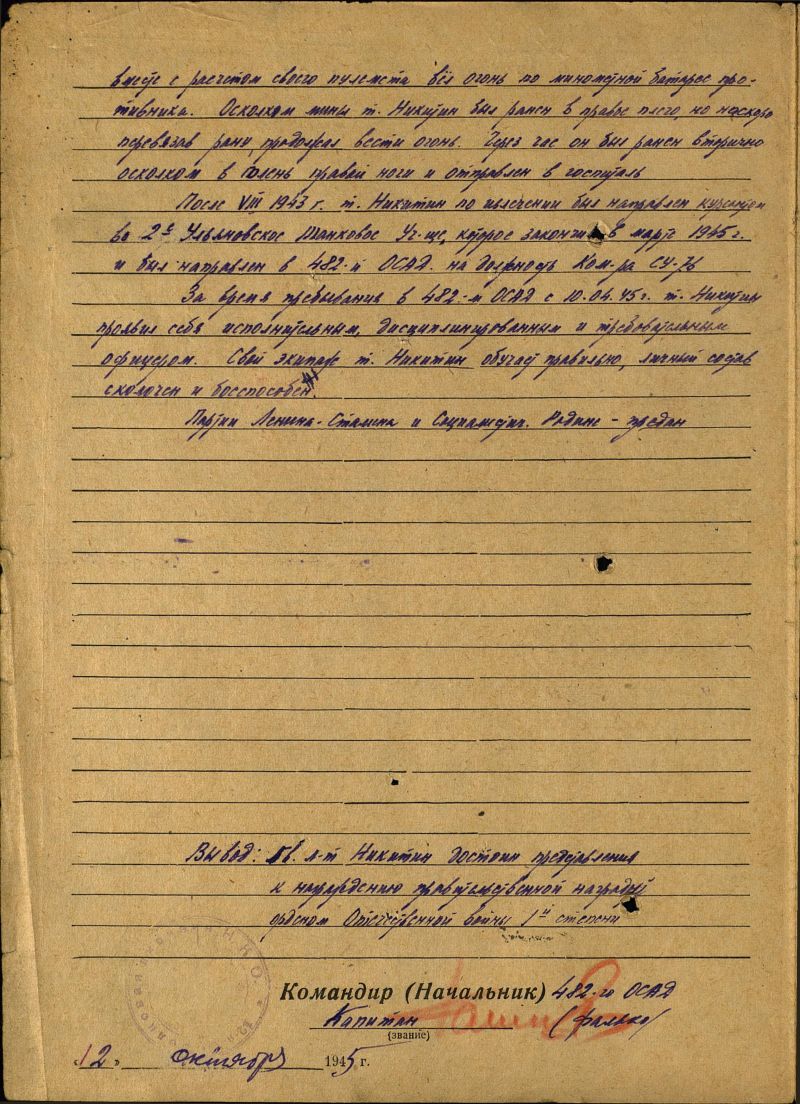 вместе с расчетом своего пулемета вёл огонь по минометной батарее про-
тивника. Осколком мины т. Никитин был ранен в правое плечо, но наскоро
перевязав рану, продолжал вести огонь. Через час он был ранен вторично
осколком в голень правой ноги и отправлен в госпиталь
После VIII 1943 г. т. Никитин по излечении был направлен курсантом
во 2-е Ульяновское Танковое Уч-ще, которое закончил в марте 1945 г.
и был направлен в 482-й ОСАД. на должность Ком-ра СУ-76
За время пребывания в 482-м ОСАД с 10.04.45 г. т. Никитин
проявил себя исполнительным, дисциплинированным и требовательным
офицером. Свой экипаж т. Никитин обучает правильно, личный состав
сколочен и боеспособен.
Партии Ленина-Сталина и Социалистич. Родине - предан
Вывод: Гв. л-т Никитин достоин представления
к награждению правительственной наградой
орденом Отечественной войны 1й степени
Командир (Начальник) 482-го ОСАД
Капитан (Фалько)
(звание)
"12" Октября 1945 г.